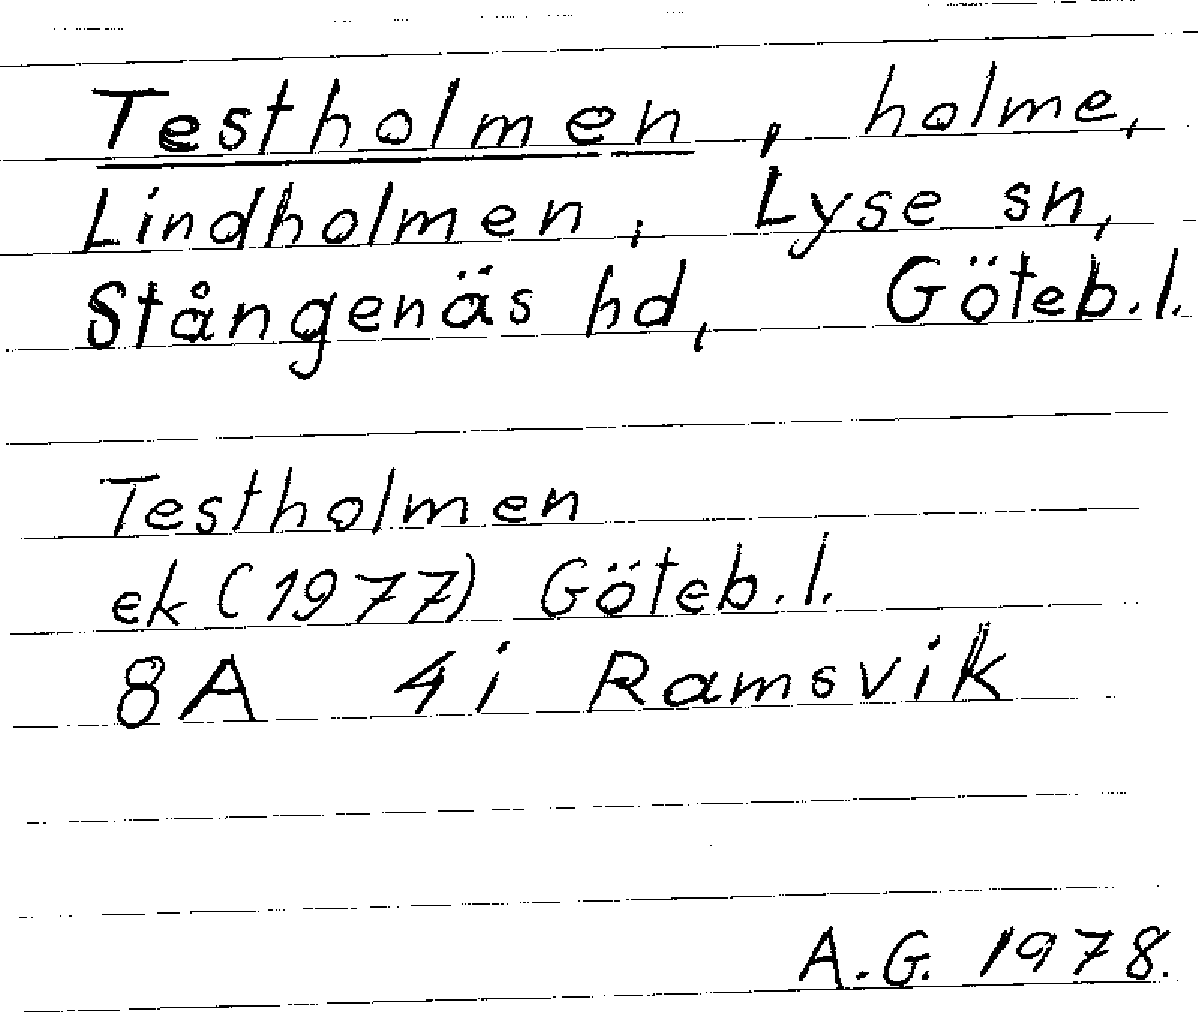 Testholmen, holme,
Lindholmen, Lyse sn,
Stångenäs hd, Göteb.l.
Testholmen
ek (1977) Göteb.l.
8A 4i Ramsvik
A.G. 1978.